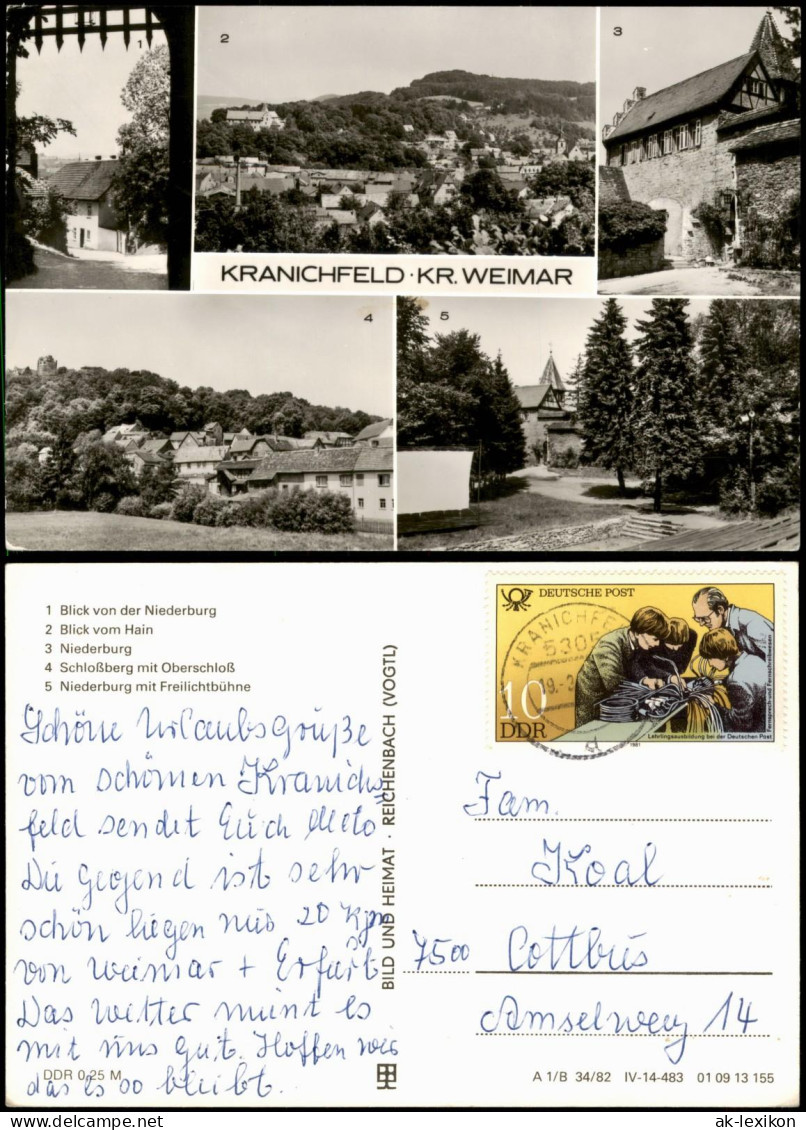 1
2
3
KRANICHFELD · KR. WEIMAR
4
5
1 Blick von der Niederburg
2 Blick vom Hain
3 Niederburg
4 Schloßberg mit Oberschloß
5 Niederburg mit Freilichtbühne
Schöne Urlaubsgrüße
vom schönen Kranich=
feld sendet Euch
Die Gegend ist sehr
schön liegen nur 20 km
von Weimar + Erfurt
Das Wetter meint es
mit uns gut. Hoffen wir
das es so bleibt.
DDR 0,25 M
BILD UND HEIMAT · REICHENBACH (VOGTL)
DEUTSCHE POST
10
DDR
Fernsprech- und Fernschreibwesen
Lehrlingsausbildung bei der Deutschen Post
1981
KRANICHFE
5306
Fam.
Koal
7500 Cottbus
Amselweg 14
A 1/B 34/82 IV-14-483 01 09 13 155
oldthing.de
ak-lexikon